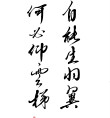 自能生羽翼
何必仰雲梯